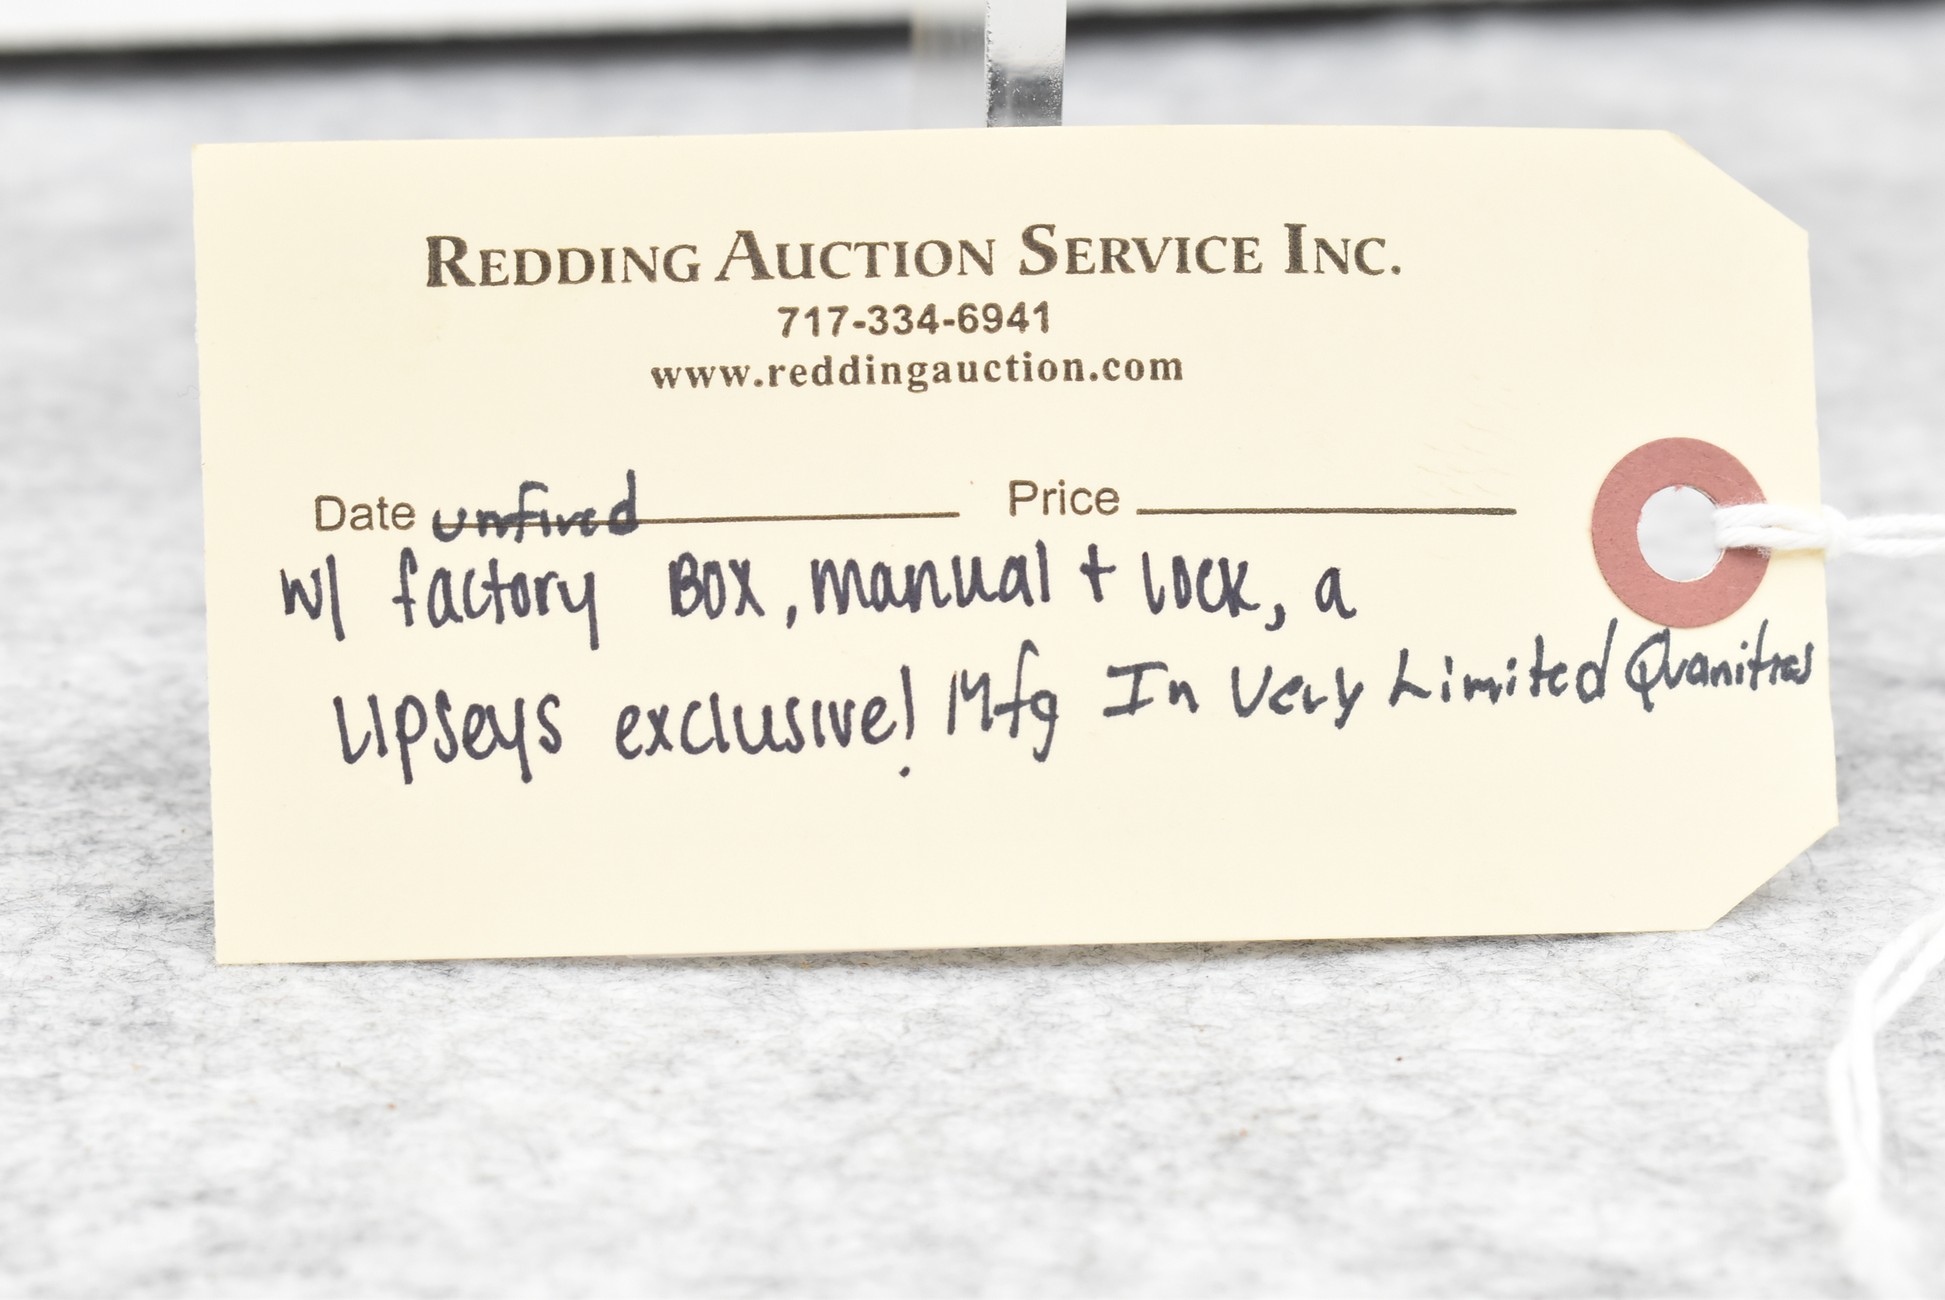 REDDING AUCTION SERVICE INC.
717-334-6941
www.reddingauction.com
Date unfired Price
w/ factory Box, manual + lock, a
Lipseys exclusive! Mfg In Very Limited Quanities